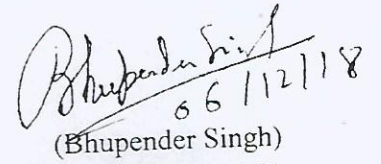 Bhupender Singh
06/12/18
(Bhupender Singh)